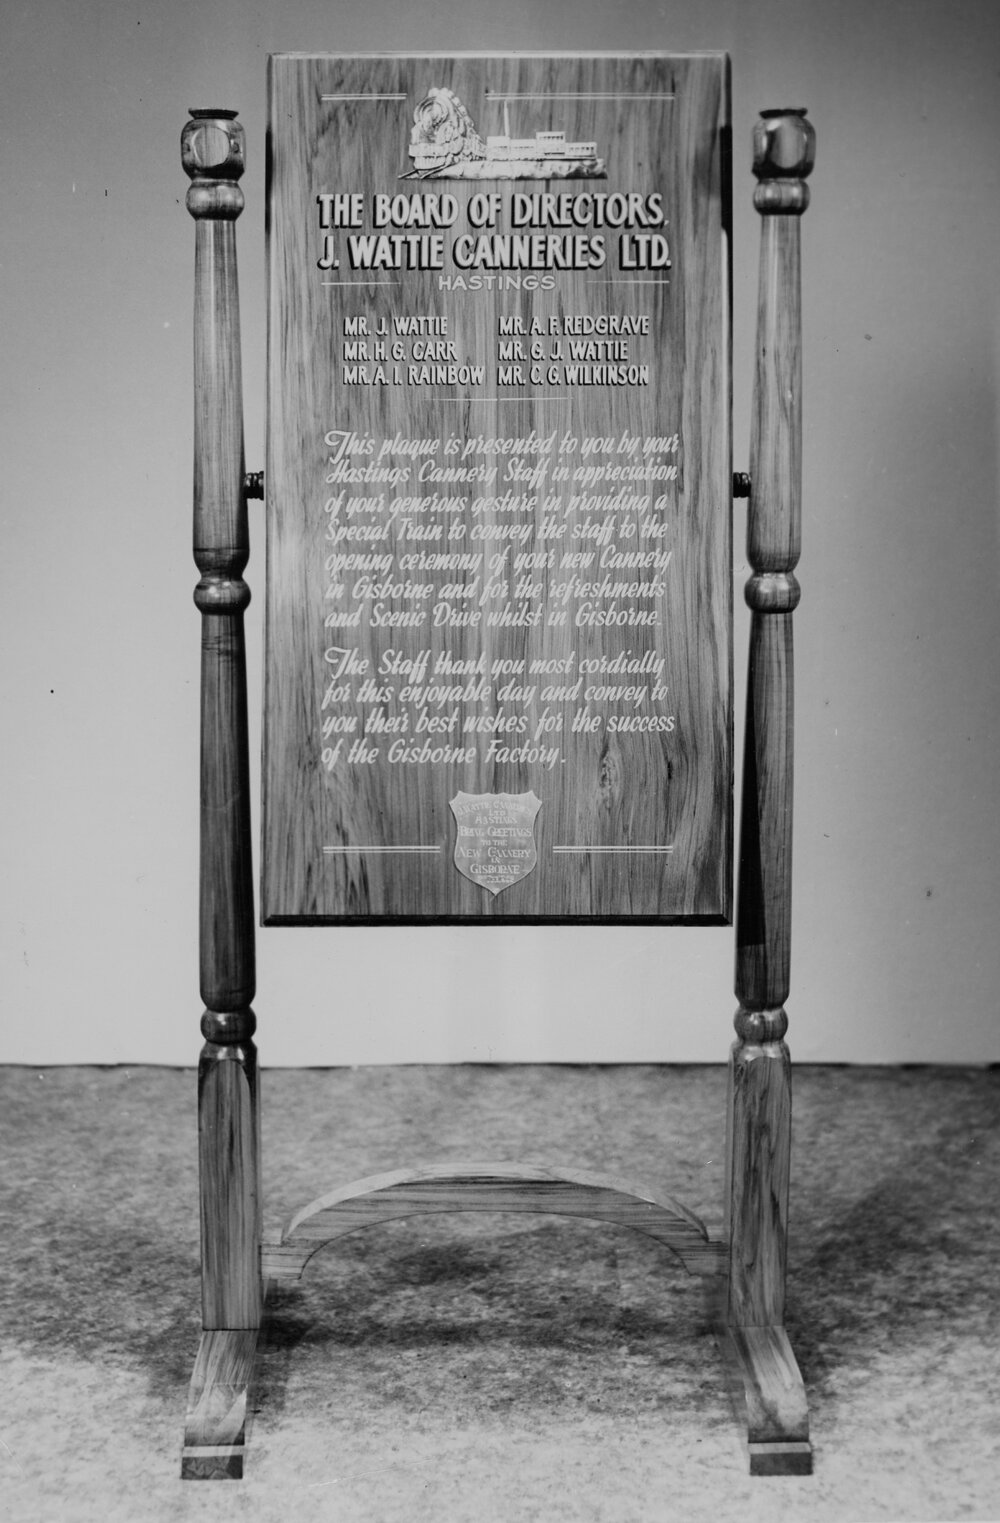 THE BOARD OF DIRECTORS,
J. WATTIE CANNERIES LTD.
HASTINGS
MR. J. WATTIE MR. A. F. REDGRAVE
MR. H. G. CARR MR. G. J. WATTIE
MR. A. I. RAINBOW MR. C. G. WILKINSON
This plaque is presented to you by your
Hastings Cannery Staff in appreciation
of your generous gesture in providing a
Special Train to convey the staff to the
opening ceremony of your new Cannery
in Gisborne and for the refreshments
and Scenic Drive whilst in Gisborne.
The Staff thank you most cordially
for this enjoyable day and convey to
you their best wishes for the success
of the Gisborne Factory.
J. WATTIE CANNERIES
LTD
HASTINGS
BRING GREETINGS
TO THE
NEW CANNERY
IN
GISBORNE